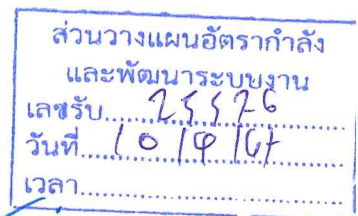 ส่วนวางแผนอัตรากำลัง
และพัฒนาระบบงาน
เลขรับ.....25526
วันที่.....10/9/67
เวลา.....